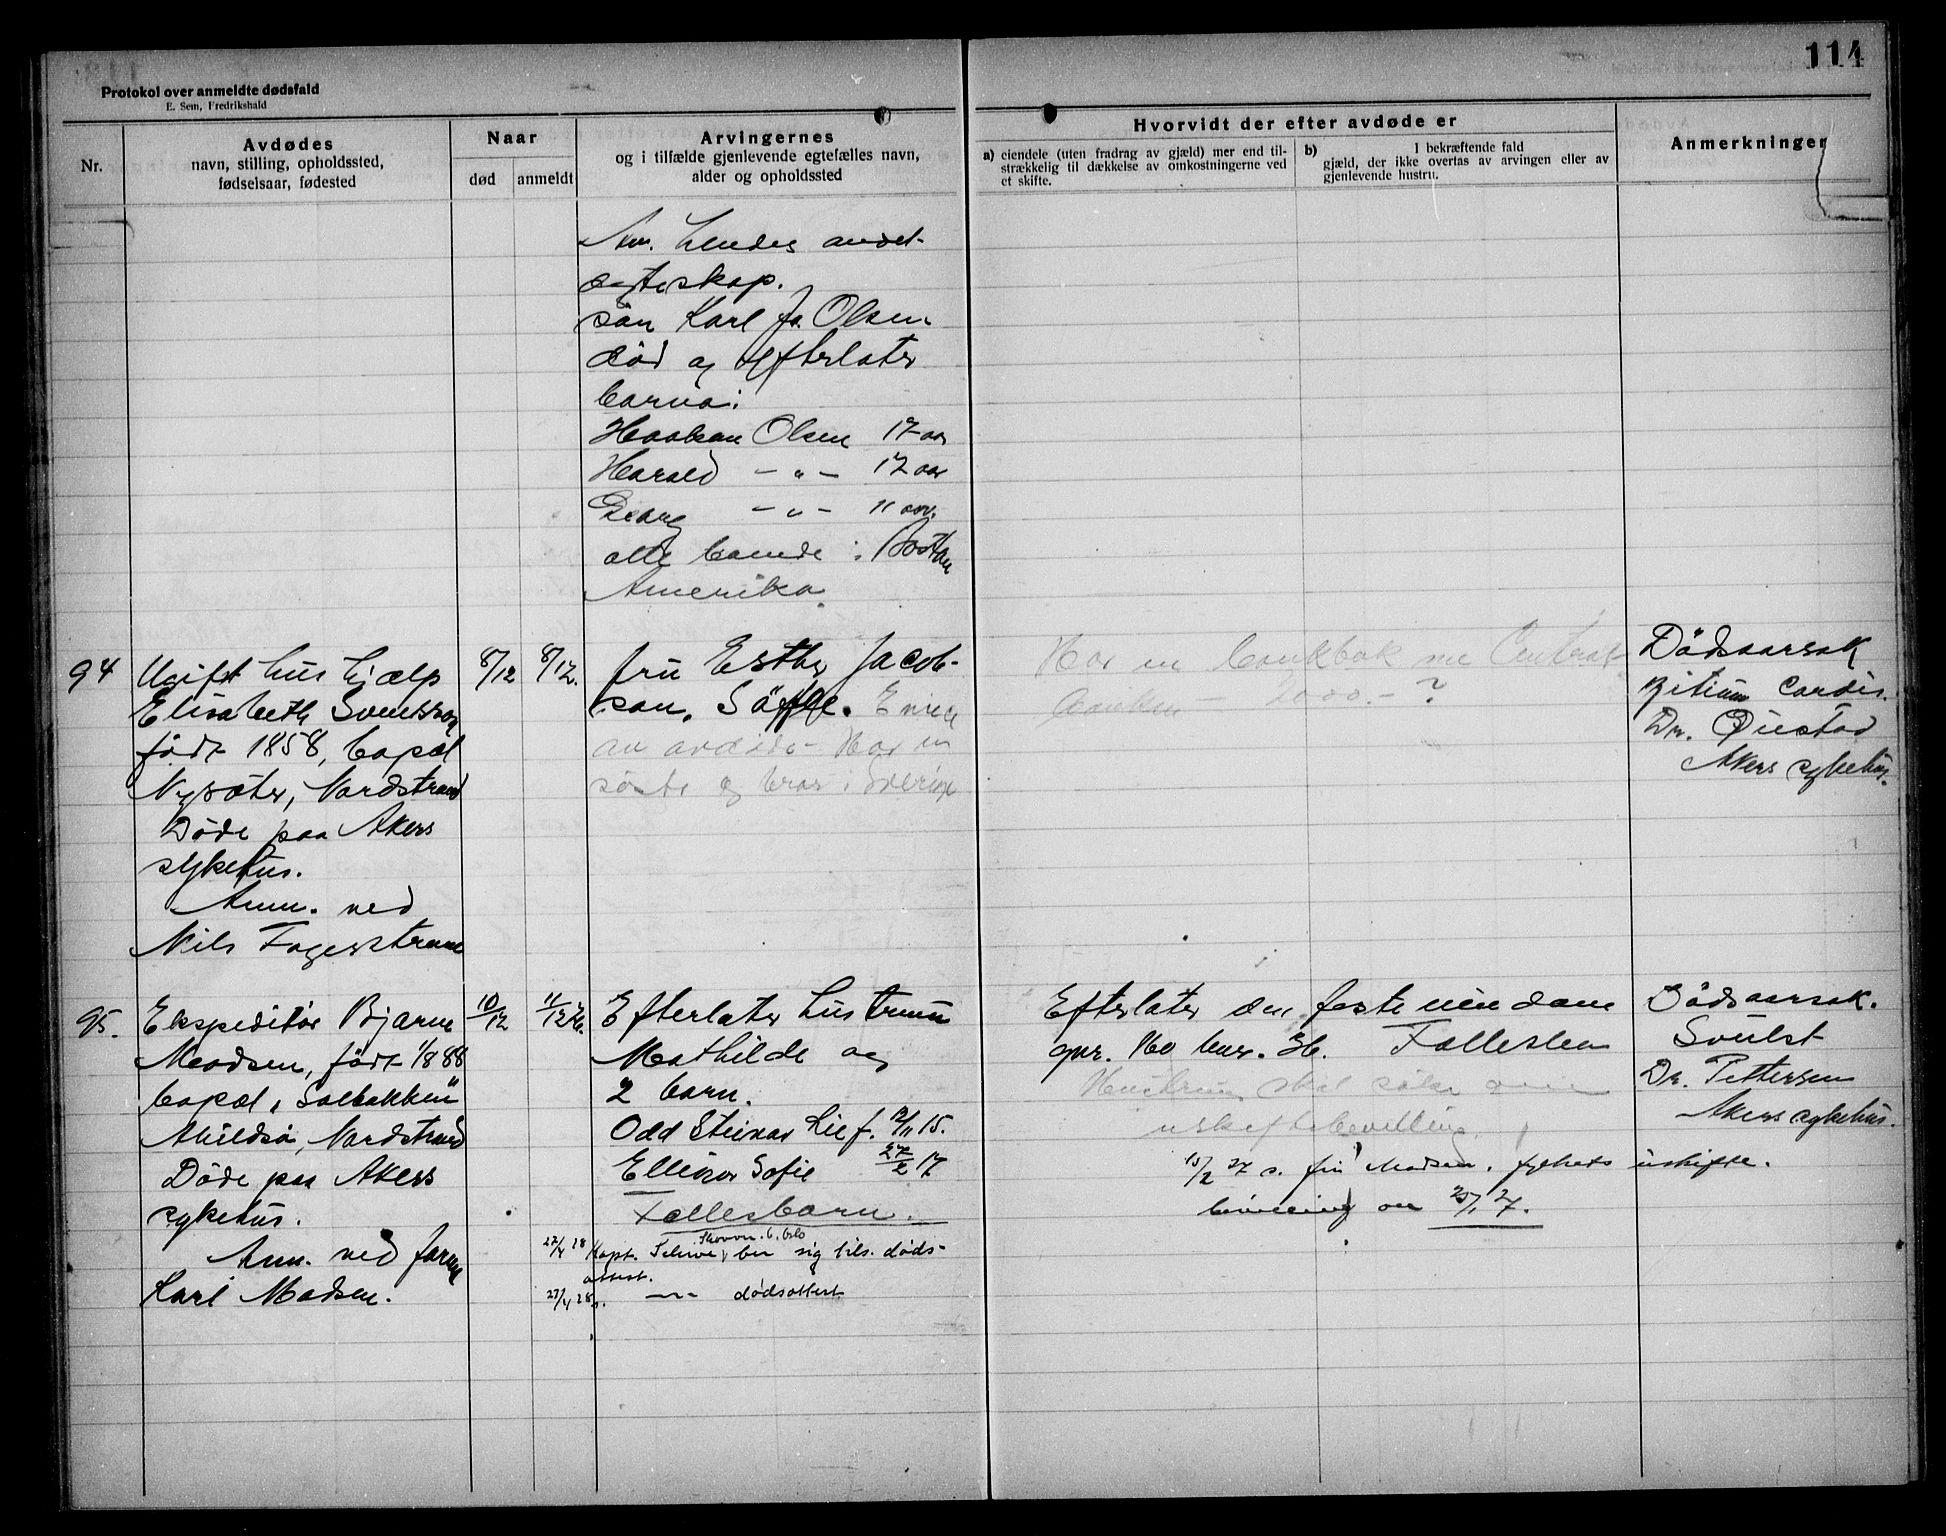 114
Protokol over anmeldte dødsfald
E. Sem, Fredrikshald
Nr.
Avdødes
navn, stilling, opholdssted,
fødselsaar, fødested
Naar
død
anmeldt
Arvingernes
og i tilfælde gjenlevende egtefælles navn,
alder og opholdssted
Hvorvidt der efter avdøde er
a) eiendele (uten fradrag av gjæld) mer end til-
strækkelig til dækkelse av omkostningerne ved
et skifte.
b) I bekræftende fald
gjæld, der ikke overtas av arvingen eller av
gjenlevende hustru.
Anmerkninger
Av. hendes andet
egteskap.
søn Karl Jo. Olsen
død og efterlater
barna:
Haakon Olsen 17 aar
Harald — „ — 12 aar
Georg — „ — 11 aar.
alle boende i Boston
Amerika.
94
Ugift hushjælp
Elisabeth Svensson
født 1858, bopæl
Nysæter, Nordstrand
Døde paa Akers
sykehus.
Anm. ved
Nils Fagerstrøm
8/12
8/12.
fru Esther Jacob-
son, Säffle.
av avdøde Har en
søster og bror i Sverige
Har en bankbok me Central
banken — 2000.- ?
Dødsaarsak
Vitium Cordis.
Dr. Øiestad
Akers sykehus.
95.
Ekspeditør Bjarne
Madsen, født 1/8 88
bopæl „Solbakken"
Abildsø, Nordstrand
Døde paa Akers
sykehus.
Anm. ved faren
Karl Madsen.
10/12
11/12 26.
Efterlater hustruen
Mathilde og
2 barn.
Odd Steinar Lie f. 12/11 15.
Ellinor Sofie 27/2 17
Fællesbarn.
Skovvn. 6. Oslo
22/4 28 Kapt. ber sig tils. døds-
attest.
27/4 28 s. —„— dødsattest
Efterlater den faste eiendom
gnr. 160 bnr. 36. Fælleslen
Hustruen skal søke om
uskiftebevilling.
15/2 27 s. fru Madsen. fylkets uskifte.
bevilling av 25/1 27.
Dødsaarsak.
Svulst
Dr. Pettersen
Akers sykehus.